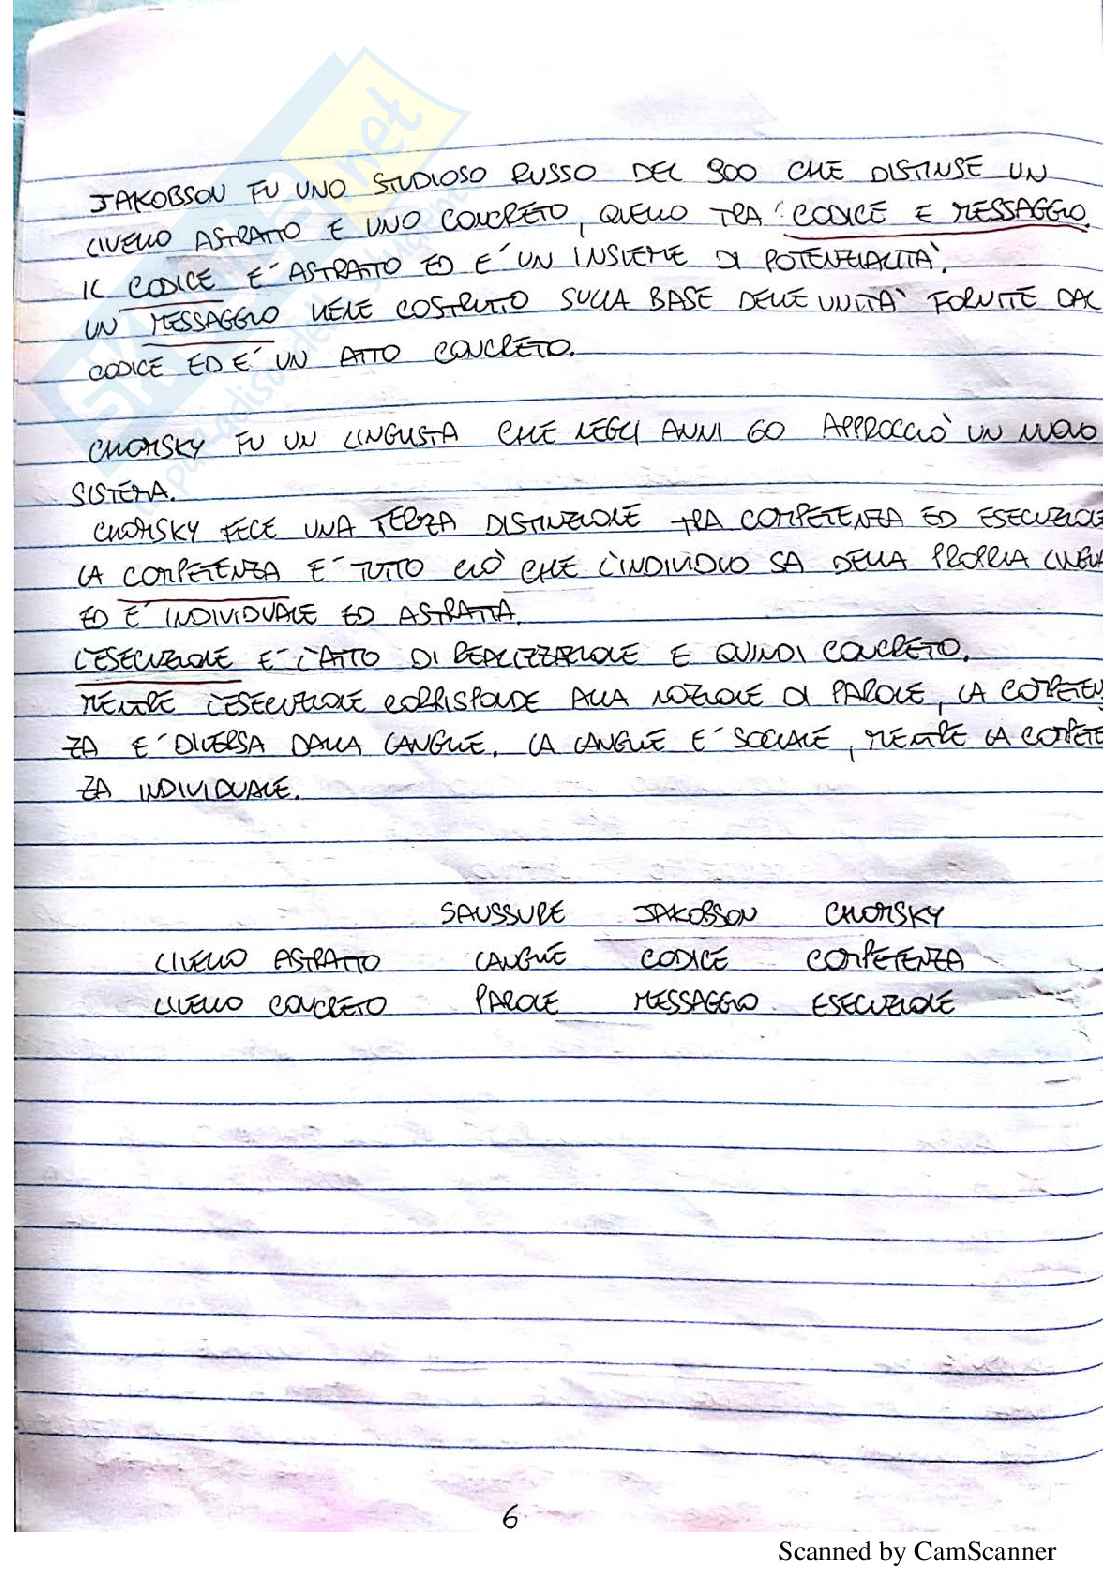 JAKOBSON FU UNO STUDIOSO RUSSO DEL 900 CHE DISTINSE UN
LIVELLO ASTRATTO E UNO CONCRETO, QUELLO TRA CODICE E MESSAGGIO.
IL CODICE E' ASTRATTO ED E' UN INSIEME DI POTENZIALITA'.
UN MESSAGGIO VIENE COSTRUITO SULLA BASE DELLE UNITA' FORNITE DAL
CODICE ED E' UN ATTO CONCRETO.
CHOMSKY FU UN LINGUISTA CHE NEGLI ANNI 60 APPROCCIÒ UN NUOVO
SISTEMA.
CHOMSKY FECE UNA TERZA DISTINZIONE TRA COMPETENZA ED ESECUZIONE
LA COMPETENZA E' TUTTO CIÒ CHE L'INDIVIDUO SA DELLA PROPRIA LINGUA
ED E' INDIVIDUALE ED ASTRATTA.
L'ESECUZIONE E' L'ATTO DI REALIZZAZIONE E QUINDI CONCRETO.
MENTRE L'ESECUZIONE CORRISPONDE ALLA NOZIONE DI PAROLE, LA COMPETEN
ZA E' DIVERSA DALLA LANGUE. LA LANGUE E' SOCIALE, MENTRE LA COMPETE
ZA INDIVIDUALE.
SAUSSURE JAKOBSON CHOMSKY
LIVELLO ASTRATTO LANGUE CODICE COMPETENZA
LIVELLO CONCRETO PAROLE MESSAGGIO ESECUZIONE
6
Scanned by CamScanner